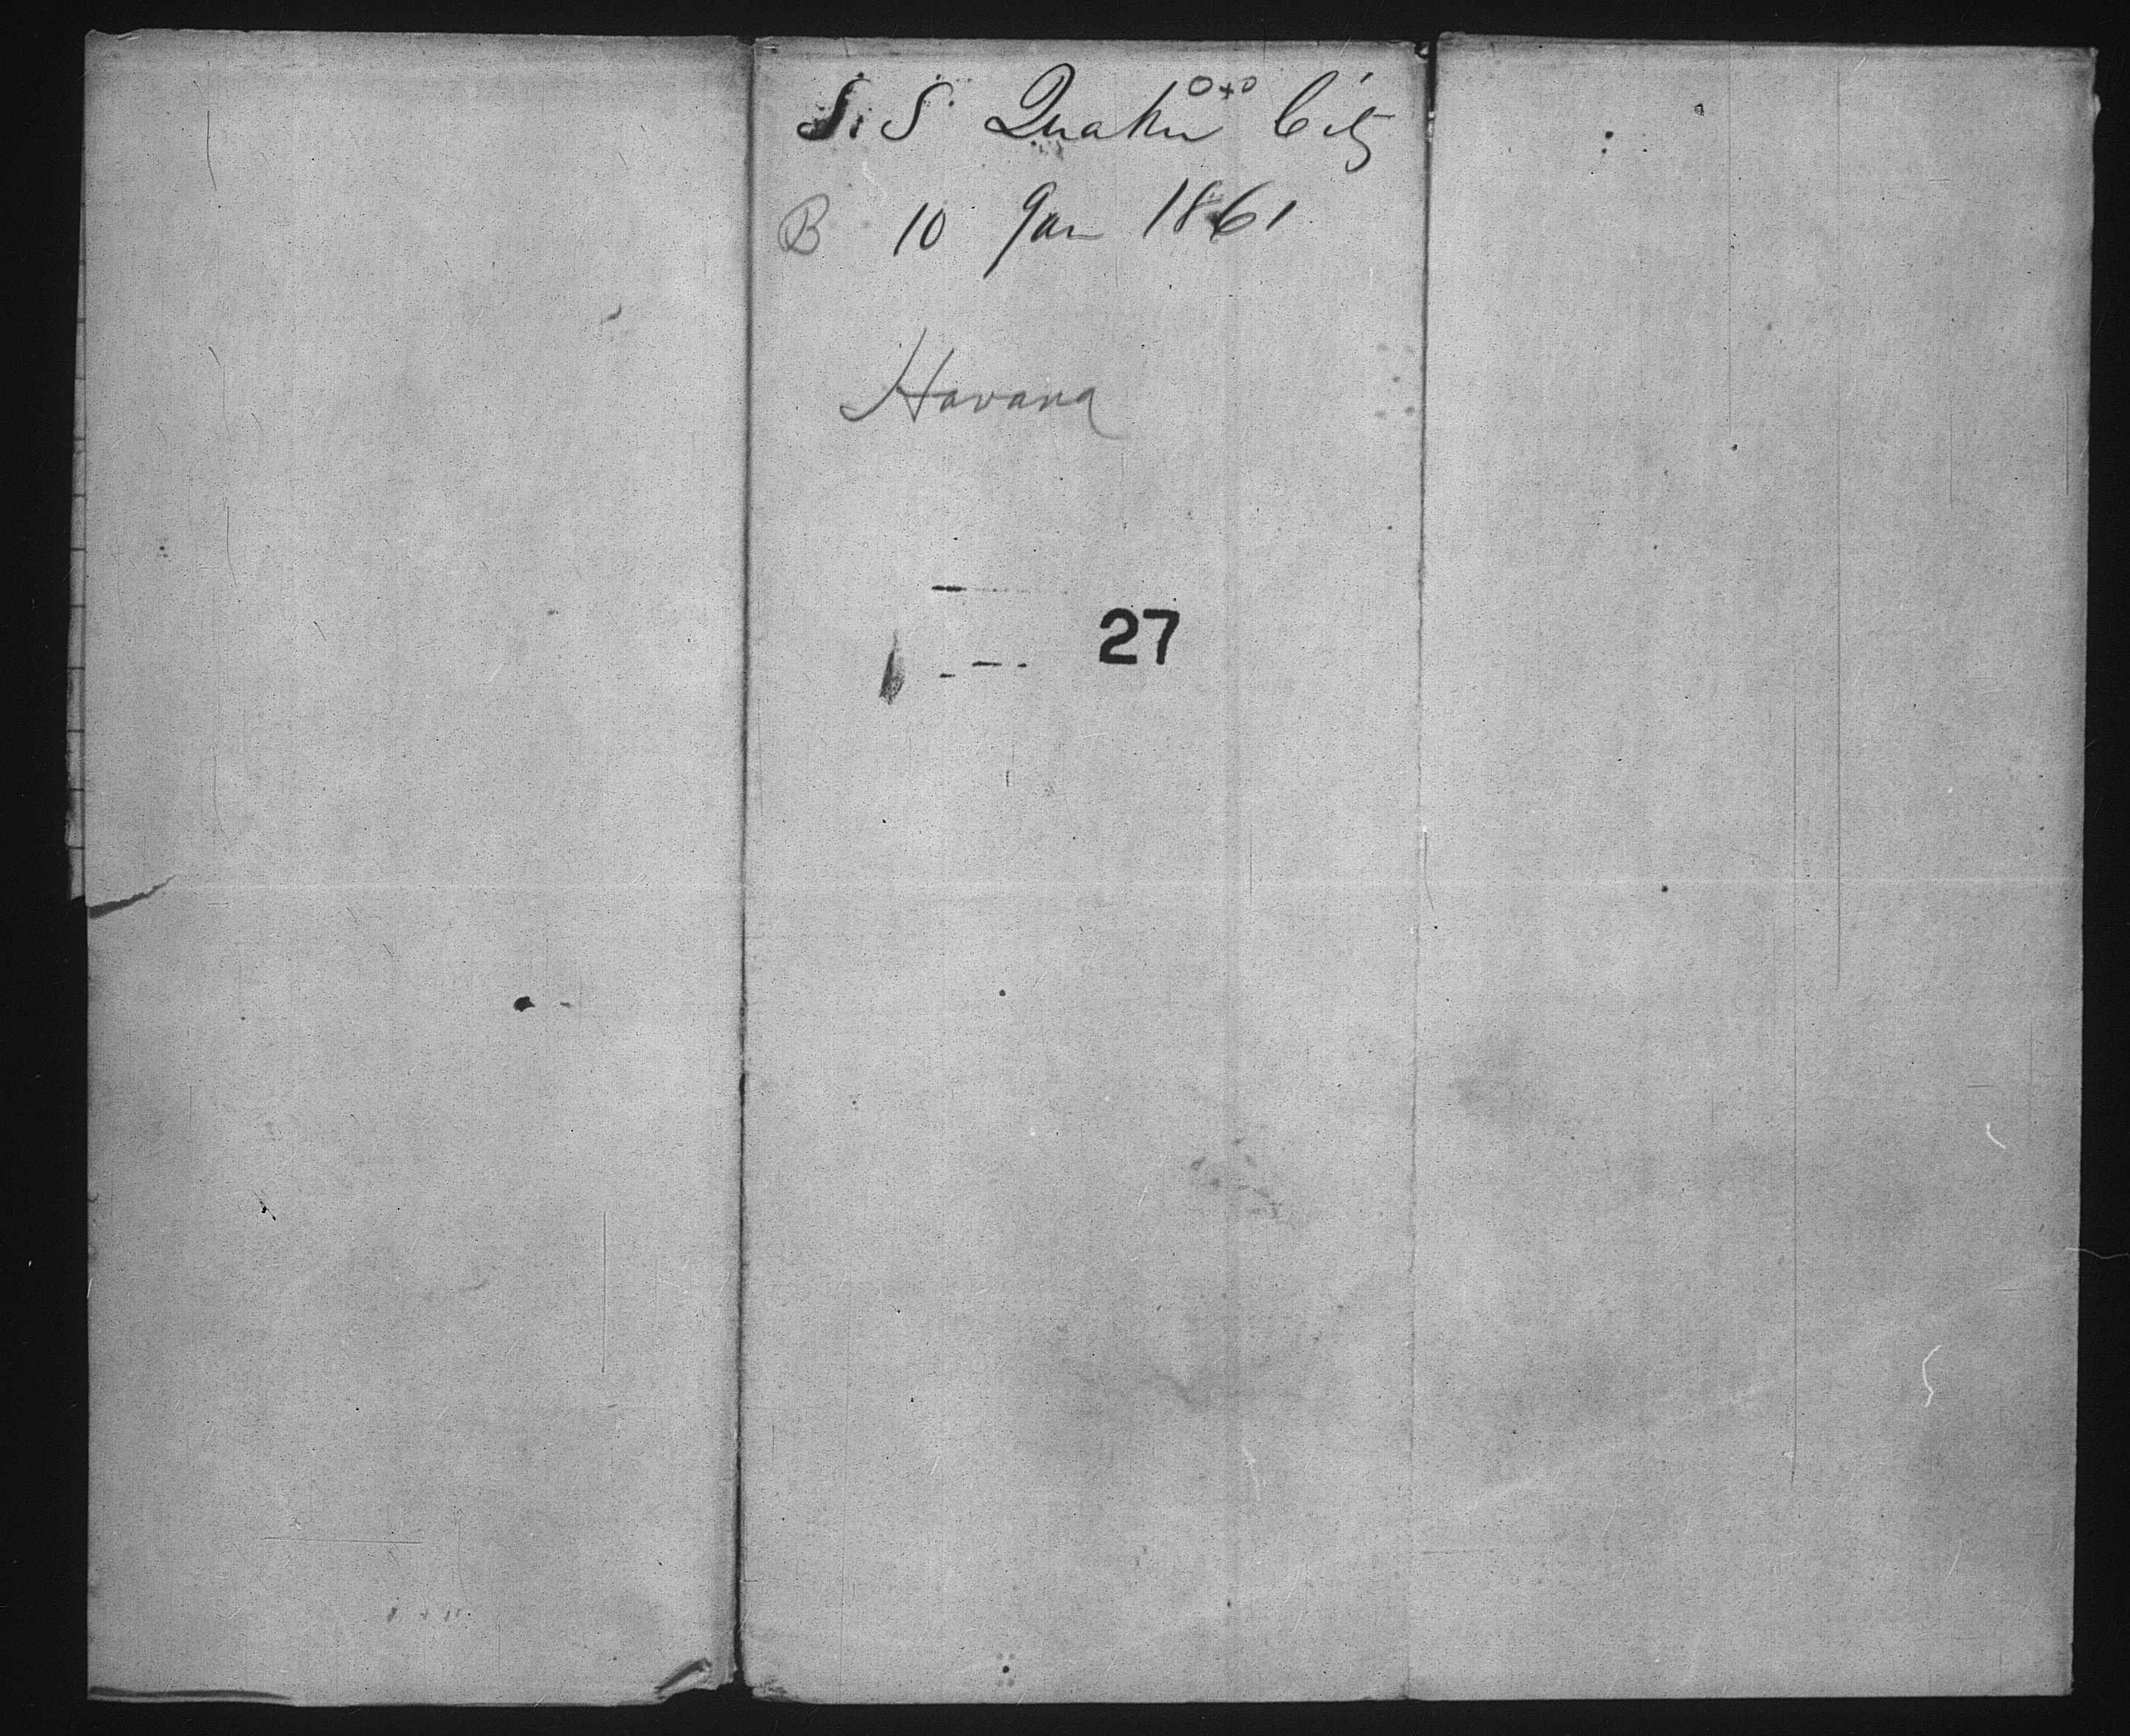 S.S Quaker City
B 10 Jan 1861
Havana
27